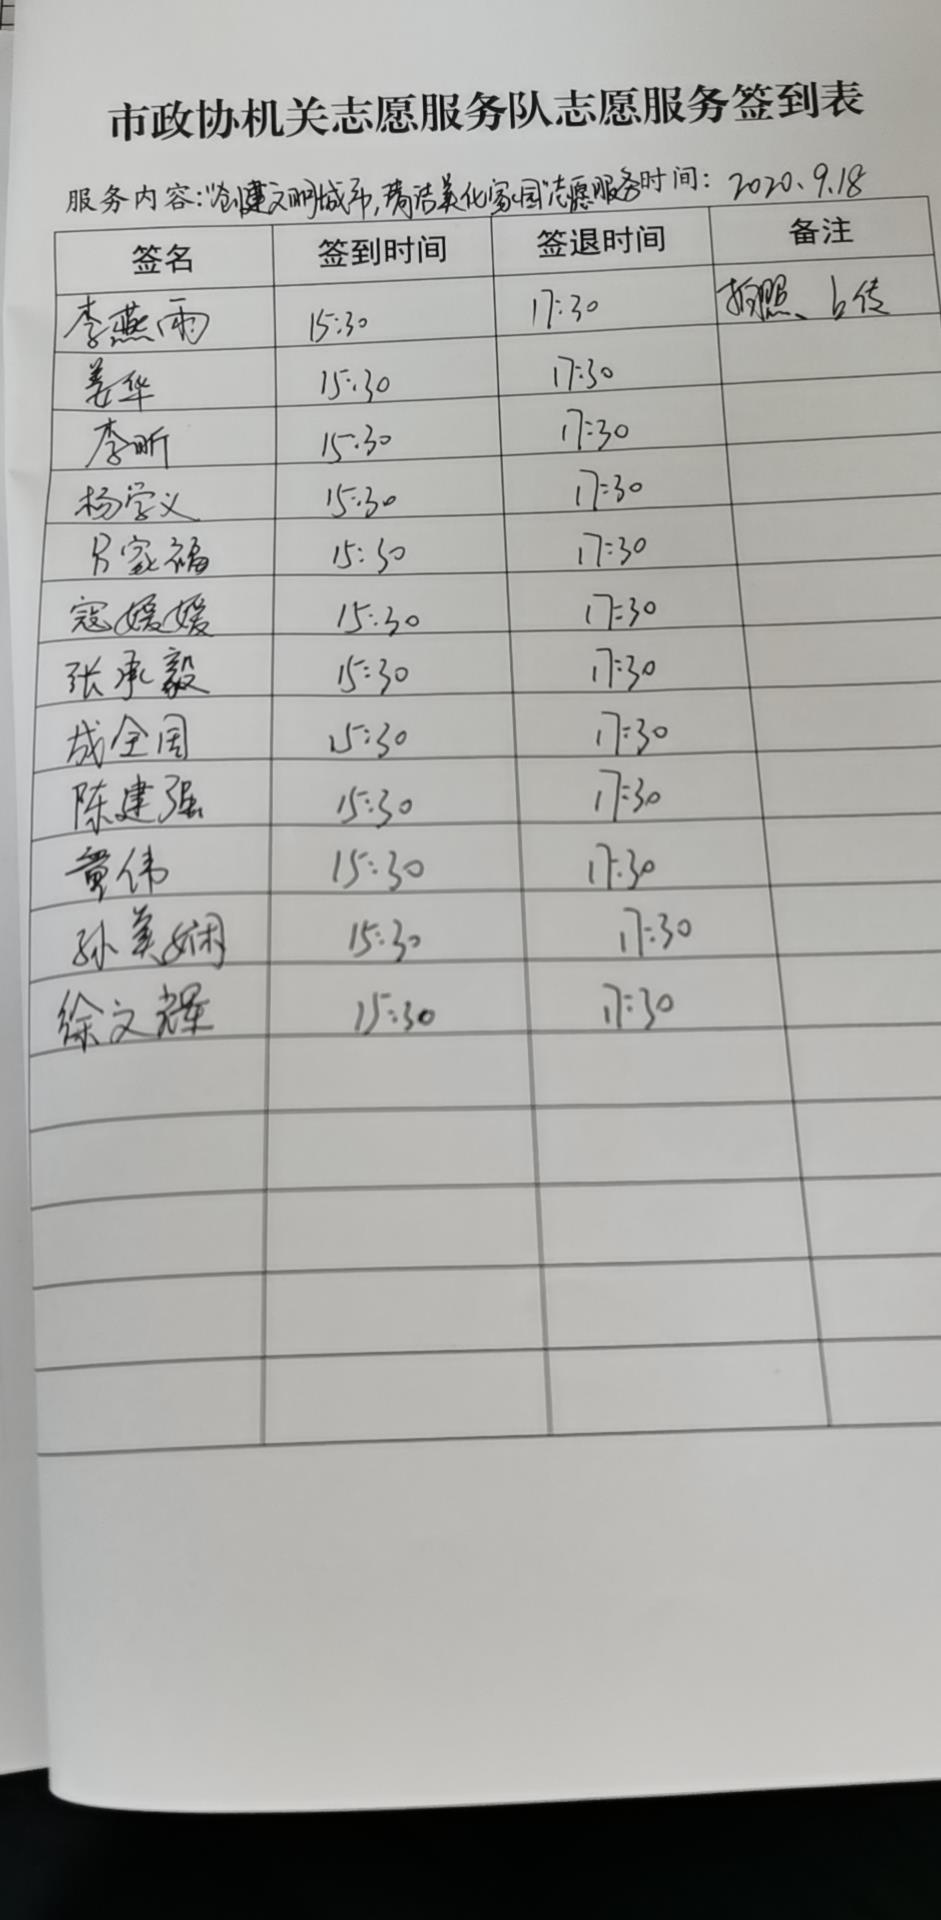 市政协机关志愿服务队志愿服务签到表
服务内容："创建文明城市,清洁美化家园"志愿服务时间：2020.9.18
签名 签到时间 签退时间 备注
李燕雨 15:30 17:30 拍照、上传
姜华 15:30 17:30
李昕 15:30 17:30
杨学义 15:30 17:30
吕家福 15:30 17:30
寇媛媛 15:30 17:30
张承毅 15:30 17:30
成全国 15:30 17:30
陈建强 15:30 17:30
童伟 15:30 17:30
孙美娴 15:30 17:30
徐文辉 15:30 17:30